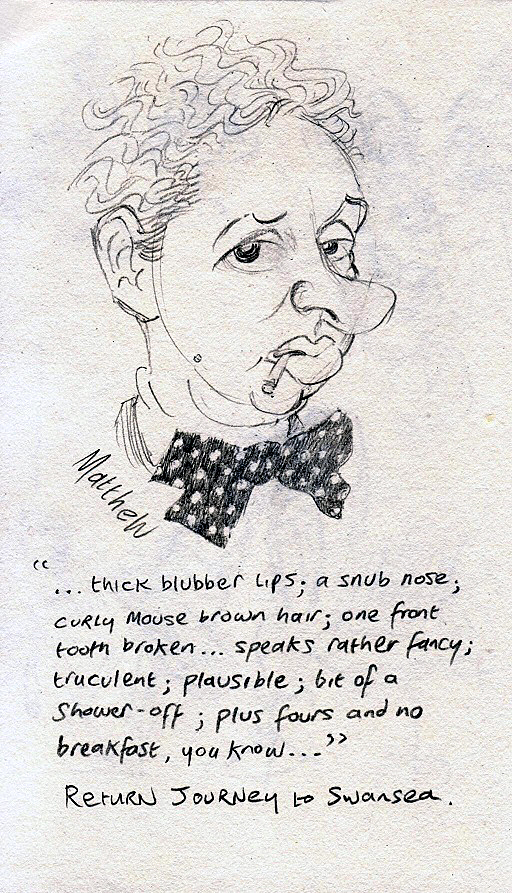 Matthew
"... thick blubber lips; a snub nose;
curly mouse brown hair; one front
tooth broken... speaks rather fancy;
truculent; plausible; bit of a
shower-off; plus fours and no
breakfast, you know..."
Return Journey to Swansea.